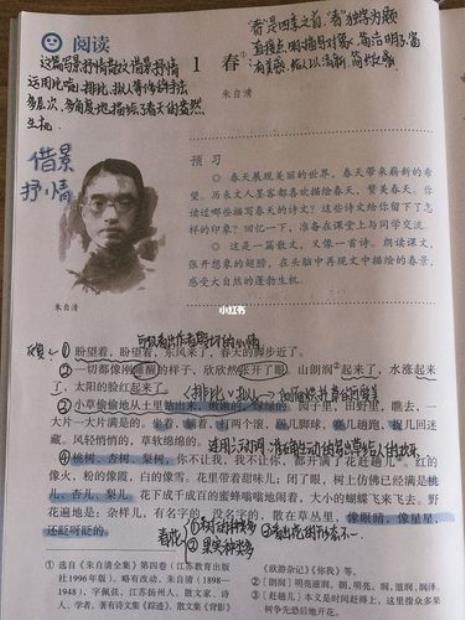 阅读
1 春①
朱自清
"春"是四季之首,"春"独字为题
直接点明描写对象,简洁明了,富
有美感,给人以清新、简炼
这篇写景抒情散文借景抒情
运用比喻、排比、拟人等修辞手法
多层次、多角度地描绘了春天的盎然
生机
借景
抒情
朱自清
预习
◎ 春天展现美丽的世界,春天带来崭新的希
望。历来文人墨客都喜欢描绘春天,赞美春天。你
读过哪些描写春天的诗文?这些诗文给你留下了怎
样的印象?回忆一下,准备在课堂上与同学交流。
◎ 这是一篇散文,又像一首诗。朗读课文,
张开想象的翅膀,在头脑中再现文中描绘的春景,
感受大自然的蓬勃生机。
小红书
① 盼望着,盼望着,东风来了,春天的脚步近了。
② 一切都像刚睡醒的样子,欣欣然张开了眼。山朗润②起来了,水涨起来
了,太阳的脸红起来了。
〈排比、拟人〉
③ 小草偷偷地从土里钻出来,嫩嫩的,绿绿的。园子里,田野里,瞧去,一
大片一大片满是的。坐着,躺着,打两个滚,踢几脚球,赛几趟跑,捉几回迷
藏。风轻悄悄的,草软绵绵的。
④ 桃树、杏树、梨树,你不让我,我不让你,都开满了花赶趟儿③。红的
像火,粉的像霞,白的像雪。花里带着甜味儿;闭了眼,树上仿佛已经满是桃
儿、杏儿、梨儿。花下成千成百的蜜蜂嗡嗡地闹着,大小的蝴蝶飞来飞去。野
花遍地是:杂样儿,有名字的,没名字的,散在草丛里,像眼睛,像星星,
还眨呀眨的。
春花
② 果实种类多
① 选自《朱自清全集》第四卷(江苏教育出版
社1996年版)。略有改动。朱自清(1898—
1948),字佩弦,江苏扬州人,散文家、诗
人、学者。著有诗文集《踪迹》、散文集《背影》
《欧游杂记》《你我》等。
② [朗润] 明亮滋润。朗,明亮。润,滋润,润泽。
③ [赶趟儿] 本义是时间赶得上,这里指众多果
树争先恐后地开花。